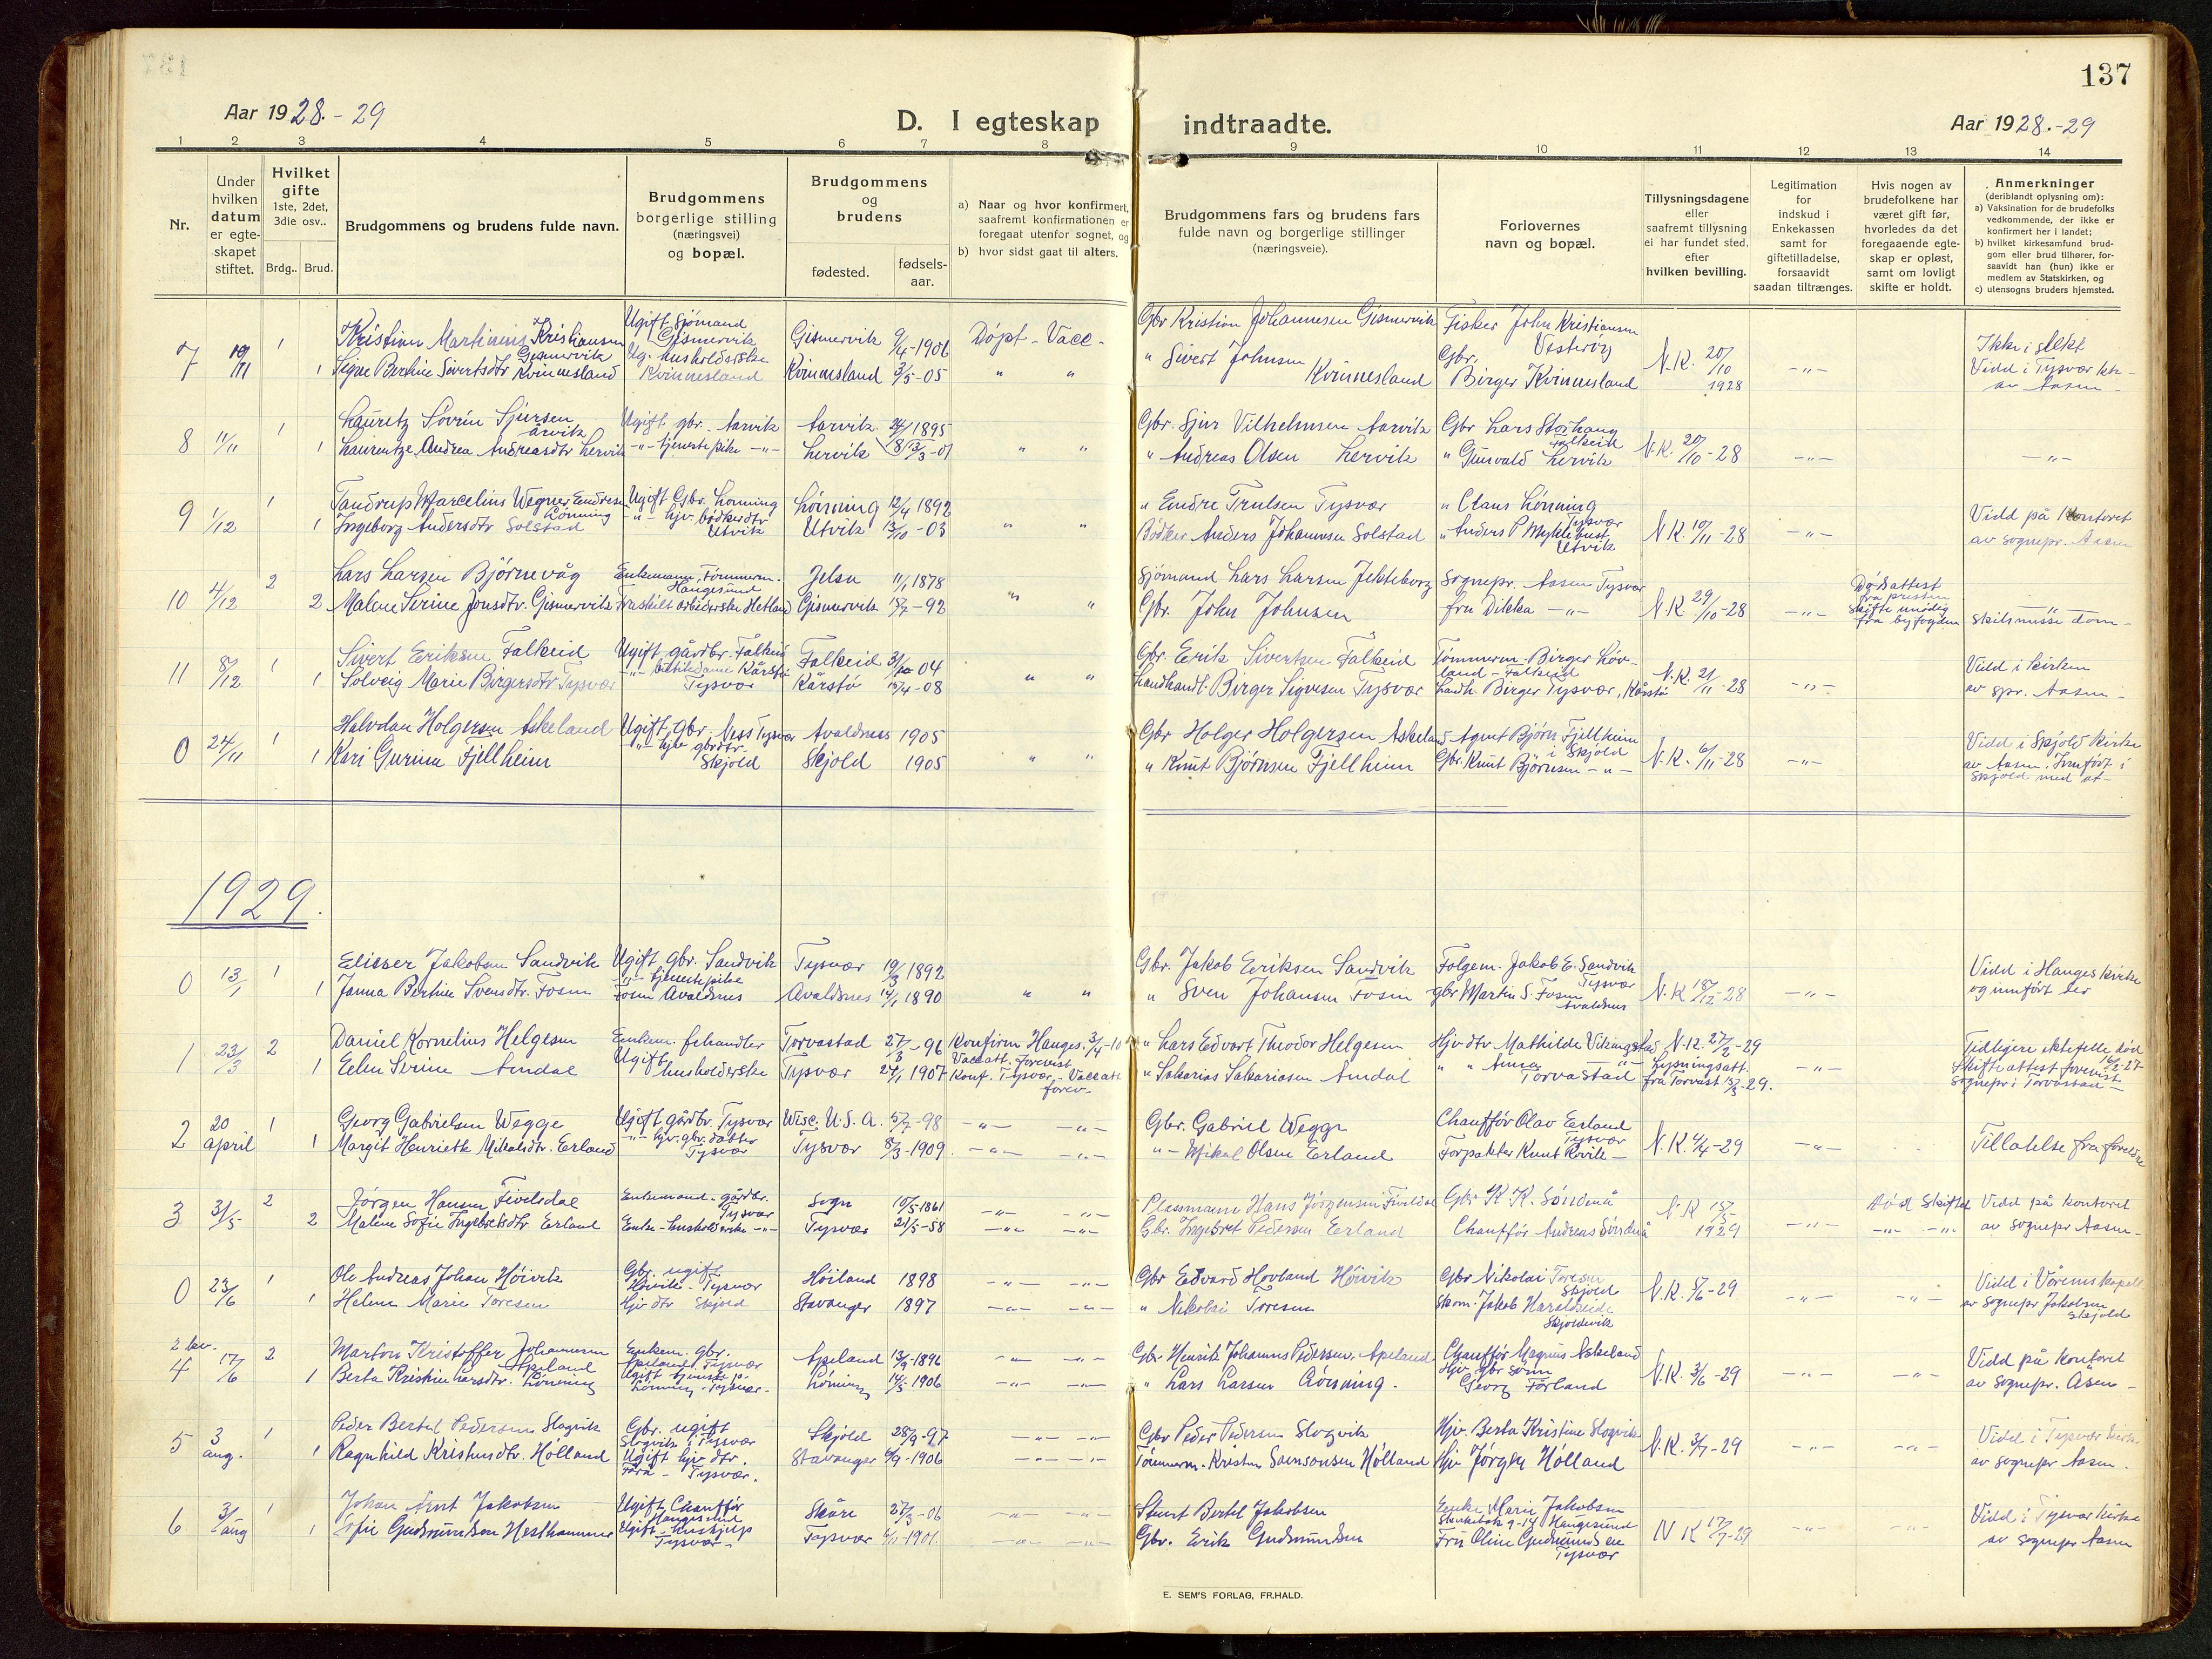 137
Aar 1928.-29
D. I egteskap indtraadte.
Aar 1928.-29
1 2 3 4 5 6 7 8 9 10 11 12 13 14
Nr.
Under hvilken datum er egteskapet stiftet.
Hvilket gifte 1ste, 2det, 3die osv..
Brdg.. Brud.
Brudgommens og brudens fulde navn.
Brudgommens borgerlige stilling (næringsvei) og bopæl.
Brudgommens og brudens
fødested. fødsels-aar.
a) Naar og hvor konfirmert, saafremt konfirmationen er foregaat utenfor sognet, og
b) hvor sidst gaat til alters.
Brudgommens fars og brudens fars fulde navn og borgerlige stillinger (næringsveie).
Forlovernes navn og bopæl.
Tillysningsdagene eller saafremt tillysning ei har fundet sted, efter hvilken bevilling.
Legitimation for indskud i Enkekassen samt for giftetilladelse, forsaavidt saadan tiltrænges.
Hvis nogen av brudefolkene har været gift før, hvorledes da det foregaaende egteskap er opløst, samt om lovligt skifte er holdt.
Anmerkninger (deriblandt oplysning om):
a) Vaksination for de brudefolks vedkommende, der ikke er konfirmert her i landet;
b) hvilket kirkesamfund brudgom eller brud tilhører, forsaavidt han (hun) ikke er medlem av Statskirken, og
c) utensogns bruders hjemsted.
7 1 Kristian Martinius Kristiansen Gismervik Ugift Sjömand Gismervik Gismervik 9/4-1906 Döpt - Vacc - Gbr Kristian Johannesen Gismervik Fisker John Kristiansen Vesteröy N.K. 20/10 1928 -"- Ikke i slekt
1 Signe Bertine Sivertsdtr Kvinnesland Ug. husholdsrske Kvinnesland Kvinnesland 3/5-05 " " " Sivert Johnsen Kvinnesland Gbr. Birger Kvinnesland Vidd i Tysvær kke - av Aasen -
8 11/11 1 Lauritz Sövrin Sjursen Årvik Ugift gbr. Aarvik Aarvik 1895 Gbr. Sjur Vilhelmsen Aarvik Gbr Lars Storhaug Falkeid N.K. 20/10-28 -"- -"-
1 Laurentze Andrea Andreasdtr Lervik -"- tjenestepike -"- Lervik 13/3-01 " " " Andreas Olsen Lervik " Gunvald Lervik
9 1/12 1 Tandrup Marcelius Wegner Endresen Lönning Ugift Gbr. Lönning Lönning 12/4 1892 " Endre Trulsen Tysvær " Claus Lönning Tysvær N.K. 10/11-28 -"- Vidd på Kontoret
1 Ingeborg Andersdtr Solstad -"- hjv. bödkerdtr Utvik Utvik 13/10-03 " " Bödker Anders Johannesen Solstad " Anders P Myklebust, Utvik av sognepr. Aasen
10 4/12 2 Lars Larsen Björnevåg Enkemann, Tömmerm. Haugesund Jelsa 11/1 1878 Sjömand Lars Larsen Jekteborg Sognepr. Aasen Tysvær N.K. 29/10-28 -"- Dödsattest fra presten
2 Malene Serine Jonsdtr. Gismervik Fraskilt arbeiderske Hetland Gismervik 15/7-92 " " Gbr. John Johnsen fru Dikka -"- Skifte unödig fra byfogden skilsmisse dom -
11 8/12 1 Sivert Eriksen Falkeid Ugift gårdbr. Falkeid Falkeid 3/10-04 Gbr. Erik Sivertsen Falkeid Tömmerm. Birger Hövland - Falkeid N.K. 21/11-28 -"- Vidd i kirken
1 Solveig Marie Birgersdtr Tysvær -"- butikdame Kårstö Tysvær Kårstö 12/4-08 " " Landhandl. Birger Sigvesen Tysvær Landh. Birger Tysvær, Kårstö av spr. Aasen -
0 24/11 1 Halvdan Holgersen Askeland Ugift, Gbr. Ness Tysvær Avaldsnes 1905 Gbr Holger Holgersen Askeland Agent Björn Fjellheim i Skjold N.K. 6/11-28 -"- Vidd i Skjold kirke
1 Kari Gurine Fjellheim -"- hjv gbrdtr Skjold Skjold 1905 " " " Knut Björnsen Fjellheim Gbr. Knut Björnsen -"- av Aasen. Innfört i Skjold med at-
1929.
0 13/1 1 Elieser Jakobsen Sandvik Ugift gbr. Sandvik Tysvær 19/3 1892 Gbr. Jakob Eriksen Sandvik Folgem. Jakob E. Sandvik Tysvær N.K 18/12-28 -"- Vidd i Hauges kirke
1 Janna Bertine Svensdtr. Fosen -"- tjenestepike Fosen Avaldsnes Avaldsnes 14/1 1890 " " " Sven Johansen Fosen gbr Martin S. Fosen Avaldsnes og innfört der
1 23/3 2 Daniel Kornelius Helgesen Enkem. fehandler Torvastad 27/3-96 Konfirm Hauges. 3/4-10 Vaccatt. forevist " Lars Edvart Theodor Helgesen Hjv dtr Mathilde Vikingstad N.K. 27/2-29 -"- Tidligere ektefelle död 16/2-27
1 Elen Serine Amdal Ugift husholderske Tysvær 24/1 1907 Konf. Tysvær - Vaccatt forev- " Sakarias Sakariasen Amdal " " Anna -"- Torvastad Lysningsatt. fra Torvast 13/3-29. Skifteattest forevist sognepr i Torvastad -
2 20 April 1 Georg Gabrielsen Wegge Ugift gårdbr. Tysvær Wisc. U.S.A. 5/7-98 -"- -"- Gbr. Gabriel Wegge Chauffför Olav Erland Tysvær N.K. 4/4-29 -"- Tillatelse fra foreldre
1 Margit Henriette Mikalsdtr. Erland -"- hjv. gbr. datter Tysvær Tysvær 8/3-1909. -"- -"- -"- Mikal Olsen Erland Forpakter Knut Rovik -"-
3 31/5 2 Jörgen Hansen Fivelsdal Enkemand - gårdbr. Tysvær Sogn 10/5-1861 -"- -"- Plassmann Hans Jörgensen Fivelsdal Gbr K K. Söndenå N.K 15/5 1929 -"- Död Skiftet Vidd på Kontoret
2 Malene Sofie Ingebretsdtr. Erland Enke - husholderske -"- Tysvær 21/5-58 -"- -"- Gbr. Ingebret Pedersen Erland Chauffför Andreas Söndenå -"- -"- av sognepr Aasen -
0 23/6 1 Ole Andreas Johan Höivik Gbr. ugift Höivik - Tysvær Höiland 1898 -"- -"- Gbr Edvard Hovland Höivik Gbr Nikolai Toresen Skjold N.K. 5/6-29 -"- -"- Vidd i Vörens kapell
1 Helene Marie Toresen Hjv dtr Skjold Stavanger 1897 -"- -"- " Nikolai Toresen Skom. Jakob Haraldseide Skjoldevik av sognepr Jakobsen Skjold
4 17/6 2 Marton Kristoffer Johannesen Apeland Enkem. gbr. Apeland, Tysvær Apeland 13/9-1896 -"- -"- Gbr. Henrik Johannes Pedersen. Apeland Chauffför Magnus Askeland N.K. 3/6-29 -"- -"- Vidd på Kontoret
1 Berta Kristine Larsdtr. Lönning Ugift tjeneste p. Lönning - Tysvær. Lönning 14/5-1906 -"- -"- " Lars Larsen Lönning. Hjv. gbr sönn Georg Förland av sognepr. Åsen -
5 3 aug. 1 Peder Bertel Pedersen Slogvik Gbr. ugift Slogvik i Tysvær Skjold 28/9-97 -"- -"- Gbr Peder Pedersen Slogvik Hjv. Berta Kristine Slogvik N.K. 3/7-29 -"- -"- Vidd i Tysvær kirk.
1 Ragnhild Kristensdtr. Hölland Ugift hjv dtr. Tysvær. Stavanger 6/9-1906 -"- -"- Tömmerm. Kristen Samsonsen Hölland Hjv Jörgen Hölland av sognepr Aasen.
6 31/aug 1 Johan Arnt Jakobsen Ugift, Chauffför Haugesund Skåre 27/3-06 -"- -"- Stuert Bertel Jakobsen Enke Marie Jakobsen Haugesund N K 17/7-29 -"- -"- Vidd i Tysvær kirke
1 Sofie Gudmundsen Hesthammer Ugift - hushjelp Tysvær - Tysvær 6/11-1901. -"- -"- Gbr. Erik Gudmundsen Fru Oline Gudmundsen Tysvær av sognepr Aasen
E. SEM'S FORLAG, FR.HALD.